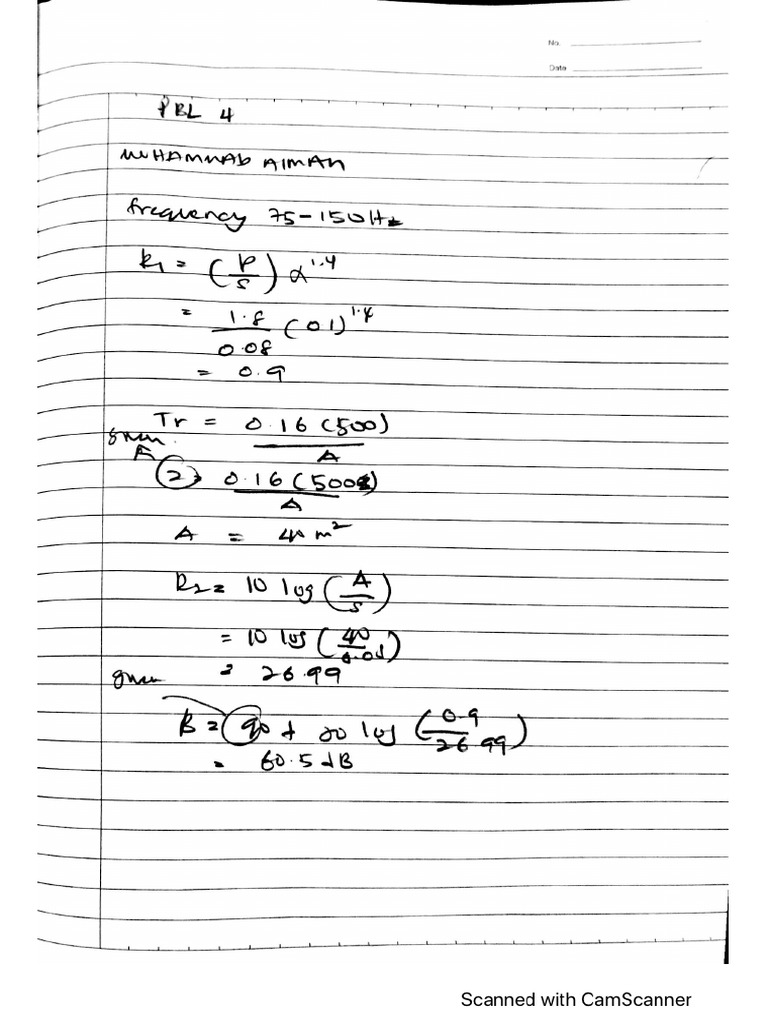 No.
Date
PBL 4
MUHAMMAD AIMAN
frequency 75-150Hz
R₁ = (P/S) α^1.4
= 1.8/0.08 (0.1)^1.4
= 0.9
Tr = 0.16 (500)/A
given
2 = 0.16 (500)/A
A = 40 m²
R₂ = 10 log (A/S)
= 10 log (40/0.08)
= 26.99
given
B = 90 + 20 log (0.9/26.99)
= 60.5 dB
Scanned with CamScanner